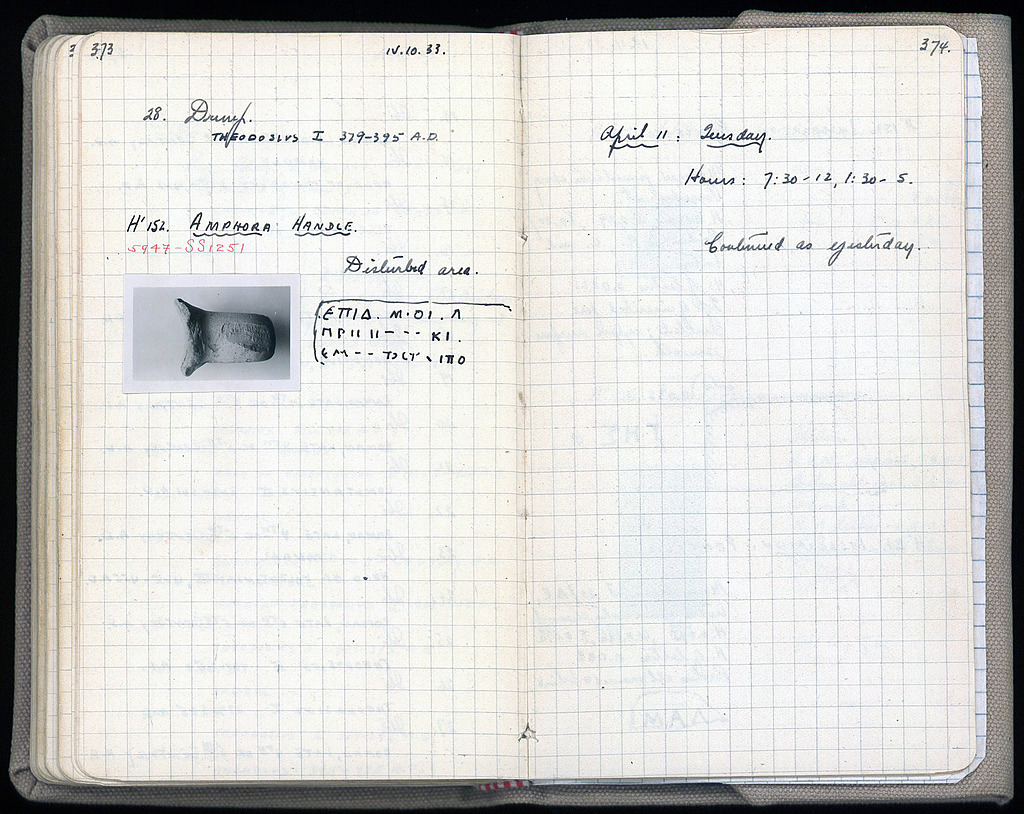 373
IV.10.33.
28. Dump.
THEODOSIVS I 379-395 A.D.
H'152. AMPHORA HANDLE.
5947-SS1251
Disturbed area.
ΕΠΙΔ. Μ·ΟΙ. Λ
ΠΡΙΙ ΙΙ--- ΚΙ.
374.
April 11: Tuesday.
Hours: 7:30-12, 1:30-5.
Continued as yesterday.